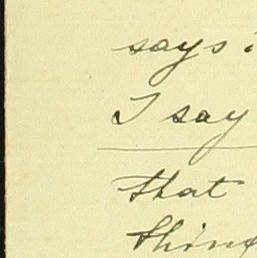 says
I say
that
thing